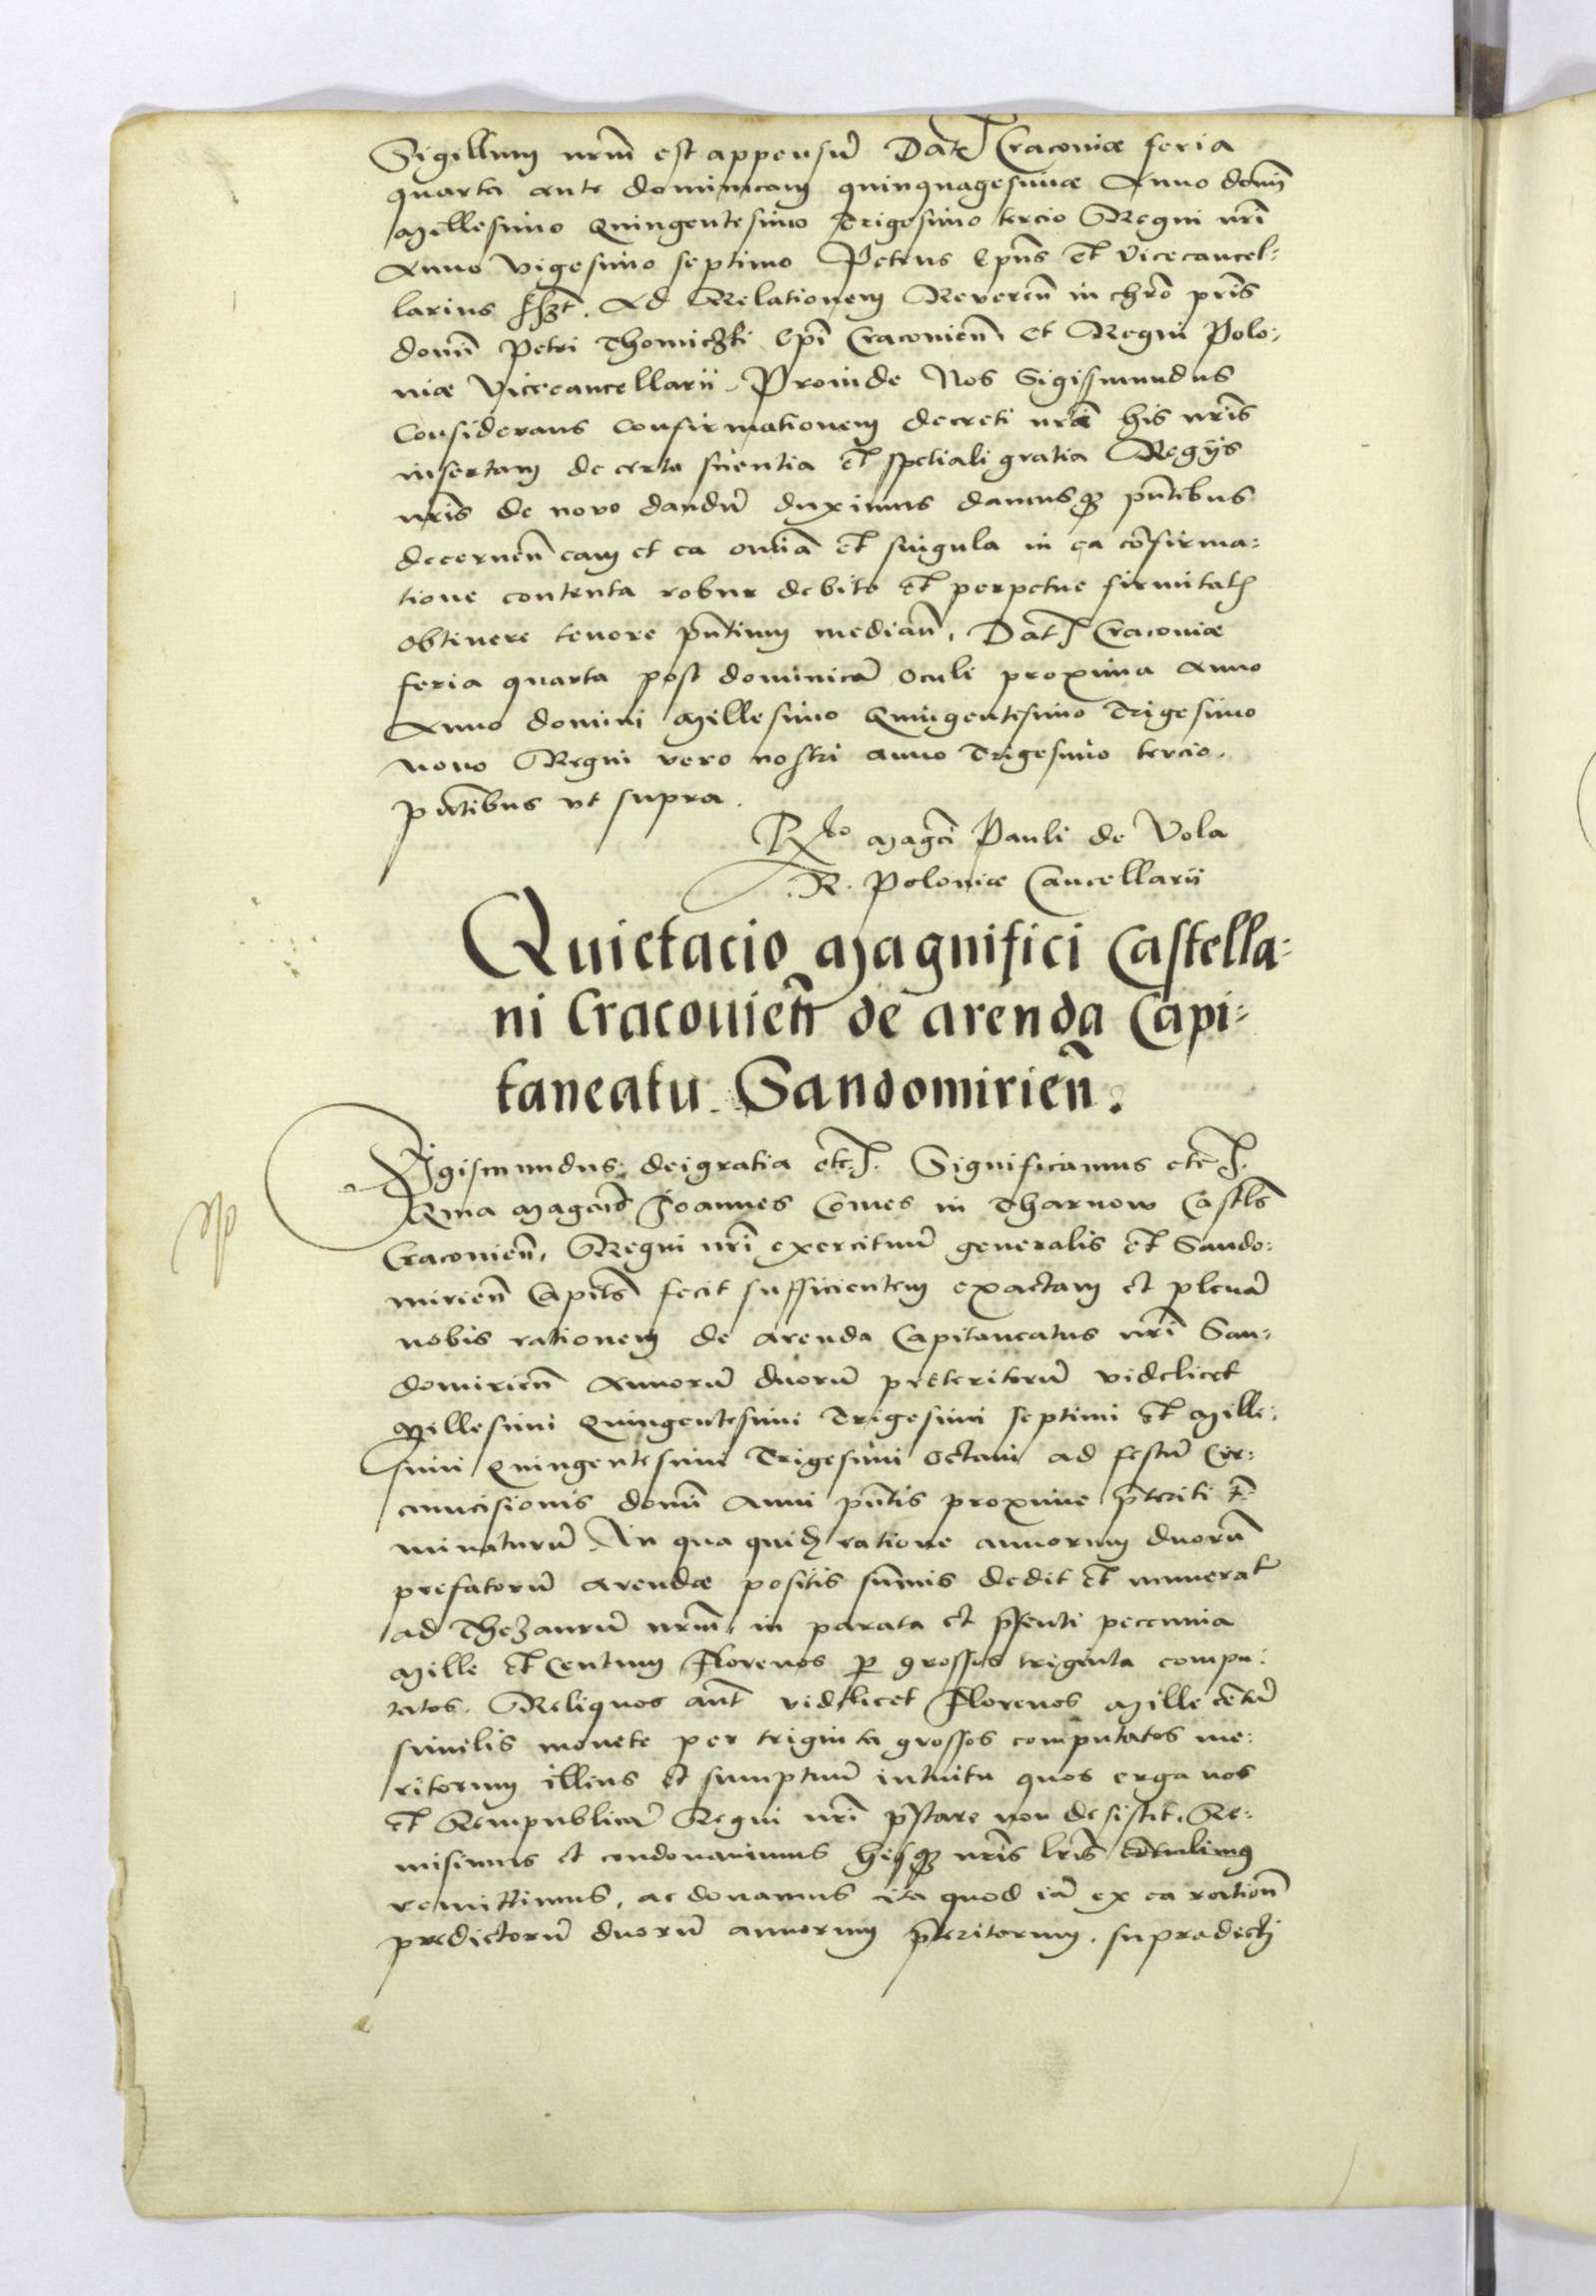 Sigillum nrm̃ est appensũ Datȩ Cracoviæ feria
quarta ante dominicam quinquagesimæ Anno domĩ
Millesimo Quingentesimo Trigesimo tercio Regni nrĩ
Anno vigesimo septimo Petrus Epũs Et Vicecancel:
larius sszt. Ad Relationem Reverẽn in chro pris
domĩ Petri Thomiczki Epĩ Cracovieñ. Et Regni Polo:
niæ Vicecancellarii. Proinde Nos Sigissmundus
Considerans Confirmationem decreti nrã his nrĩs
insertam de certa scientia Et spetiali gratia Regijs
nrĩs de novo dandũ duximus damusqȝ pñtibus
deceruẽn eam et ea omĩa Et singula in ea cõfirma:
tione contenta robur debite Et perpetue firmitatȩ
obtinere tenore pñtium mediañ. Datȩ Cracoviæ
feria quarta post dominicã Oculi proxima Anno
Anno domini Millesimo Quingentesimo Trigesimo
nono Regni vero nostri anno Trigesimo tercio.
pñtibus ut supra.
Rlo Magci Pauli de Vola
R. Poloniæ Cancellarii
Quietacio Magnifici Castella:
ni Cracovieñ de arenda Capi:
taneatu Sandomirieñ.
Sigismundus deigratia etc. Significamus etc.
Quia Magcus Joannes Comes in Tharnow Castls
Cracovieñ. Regni nrĩ exercituũ generalis Et Sando:
mirieñ Capits fecit sufficientem exactam et plenã
nobis rationem de arenda Capitaneatus nrĩ San:
domirieñ Annorũ duorũ preteritorũ videlicet
Millesimi Quingentesimi Trigesimi septimi Et Mille:
simi Quingentesimi Trigesimi Octavi ad festũ Cir:
cumcisionis domĩ Anni pñtis proxime p̃teriti t̃:
minaturũ In qua quidȩ ratione annorum duorũ
prefatorũ arendæ positis sum̃is dedit Et numerat̃
ad Thezaurũ nrm̃ in parata et p̃senti peccunia
Mille Et Centum Florenos p grossos triginta compu:
tatos. Reliquos aũt videlicet Florenos Mille cẽtũ
similis monete per triginta grossos computatos me:
ritorum illius et sumptuũ intuitu quos erga nos
Et Rempublicã Regni nrĩ p̃stare non desistit. Re:
misimus et condonavimus hisqȝ nrĩs lrĩs
remittimus, ac donamus ita quod iã ex ea rationẽ
predictorũ duorũ annorum p̃teritorum. supradictj